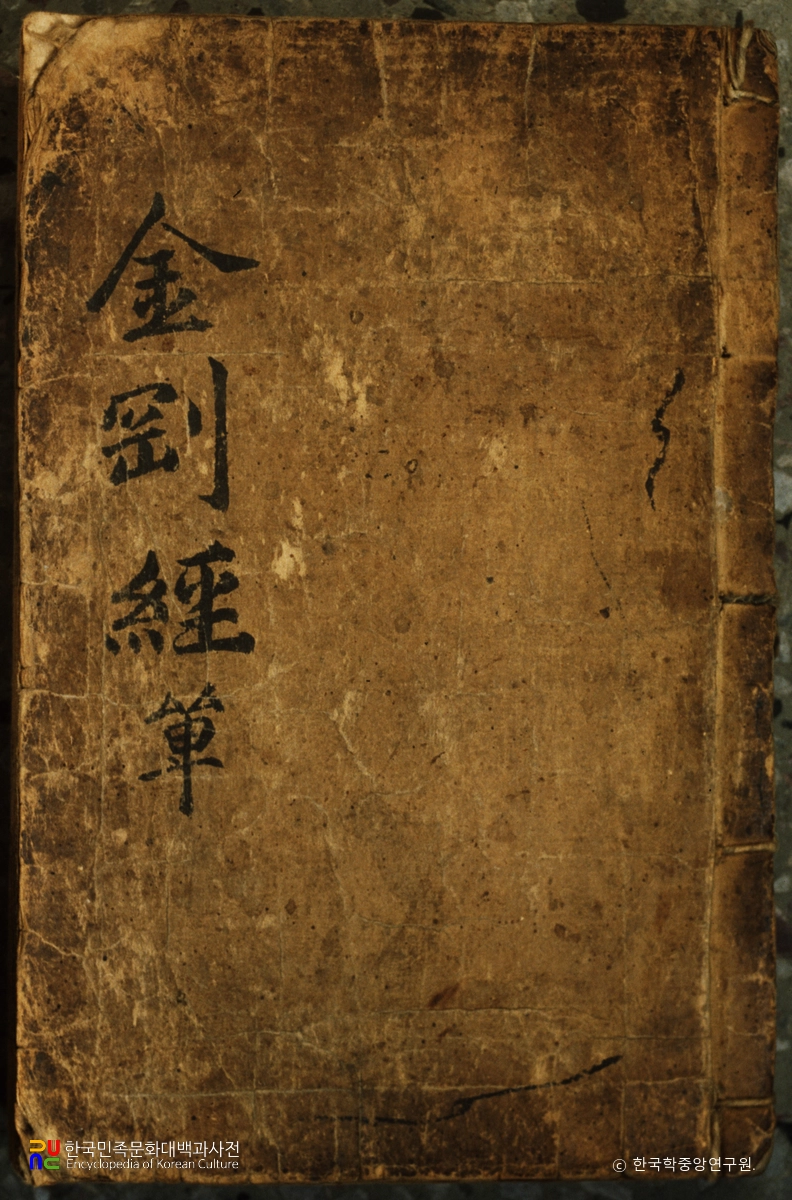 金剛經單
한국민족문화대백과사전
Encyclopedia of Korean Culture
© 한국학중앙연구원.